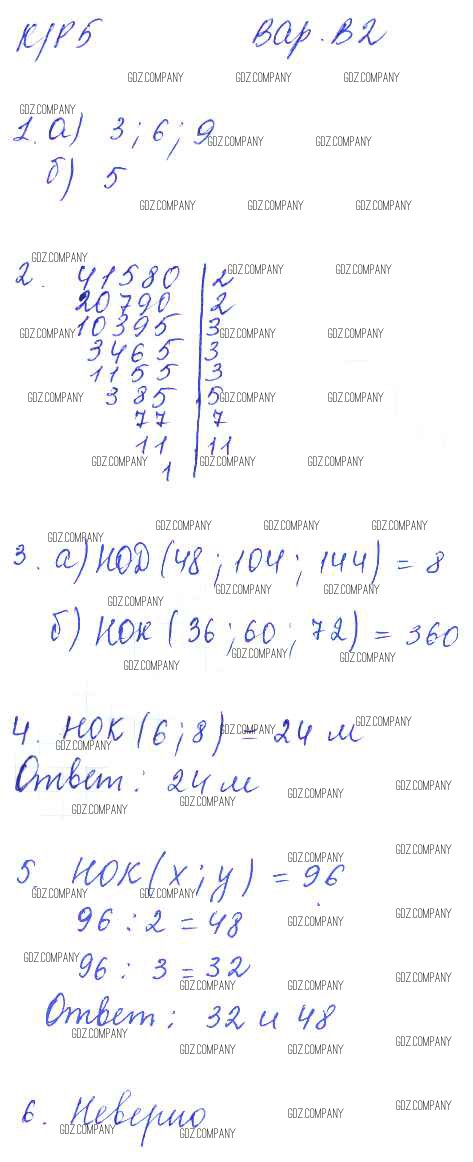 К/Р 5 Вар. В2
1. а) 3; 6; 9
б) 5
2. 41580 | 2
20790 | 2
10395 | 3
3465 | 3
1155 | 3
385 | 5
77 | 7
11 | 11
1
3. а) НОД (48; 104; 144) = 8
б) НОК (36; 60; 72) = 360
4. НОК (6; 8) = 24 м
Ответ: 24 м
5. НОК (x; y) = 96
96 : 2 = 48
96 : 3 = 32
Ответ: 32 и 48
6. Неверно
GDZ.COMPANY